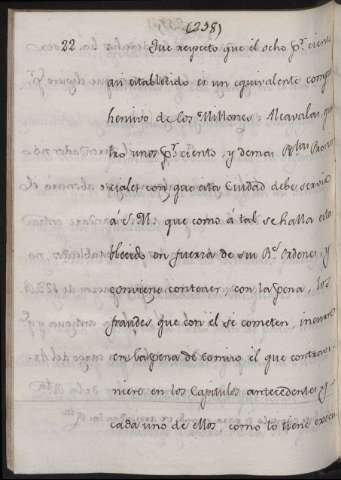 (238)
22. Que respeto que el ocho pr. ciento
aqui establecido es un equivalente comp
hensivo de los Millones, Alcavalas, qua
tro unos pr. ciento, y demas Rs.
con que esta Ciudad debe servir
á S. M. que como á tal se halla esta
blecido en fuerza de sus Rs. Ordenes, y
conviene contener, con la pena, los
fraudes que con él se cometen, incurra
en la pena de comiso el que contravi
niere en los Capitulos antecedentes, y
cada uno de ellos, como lo tiene execu